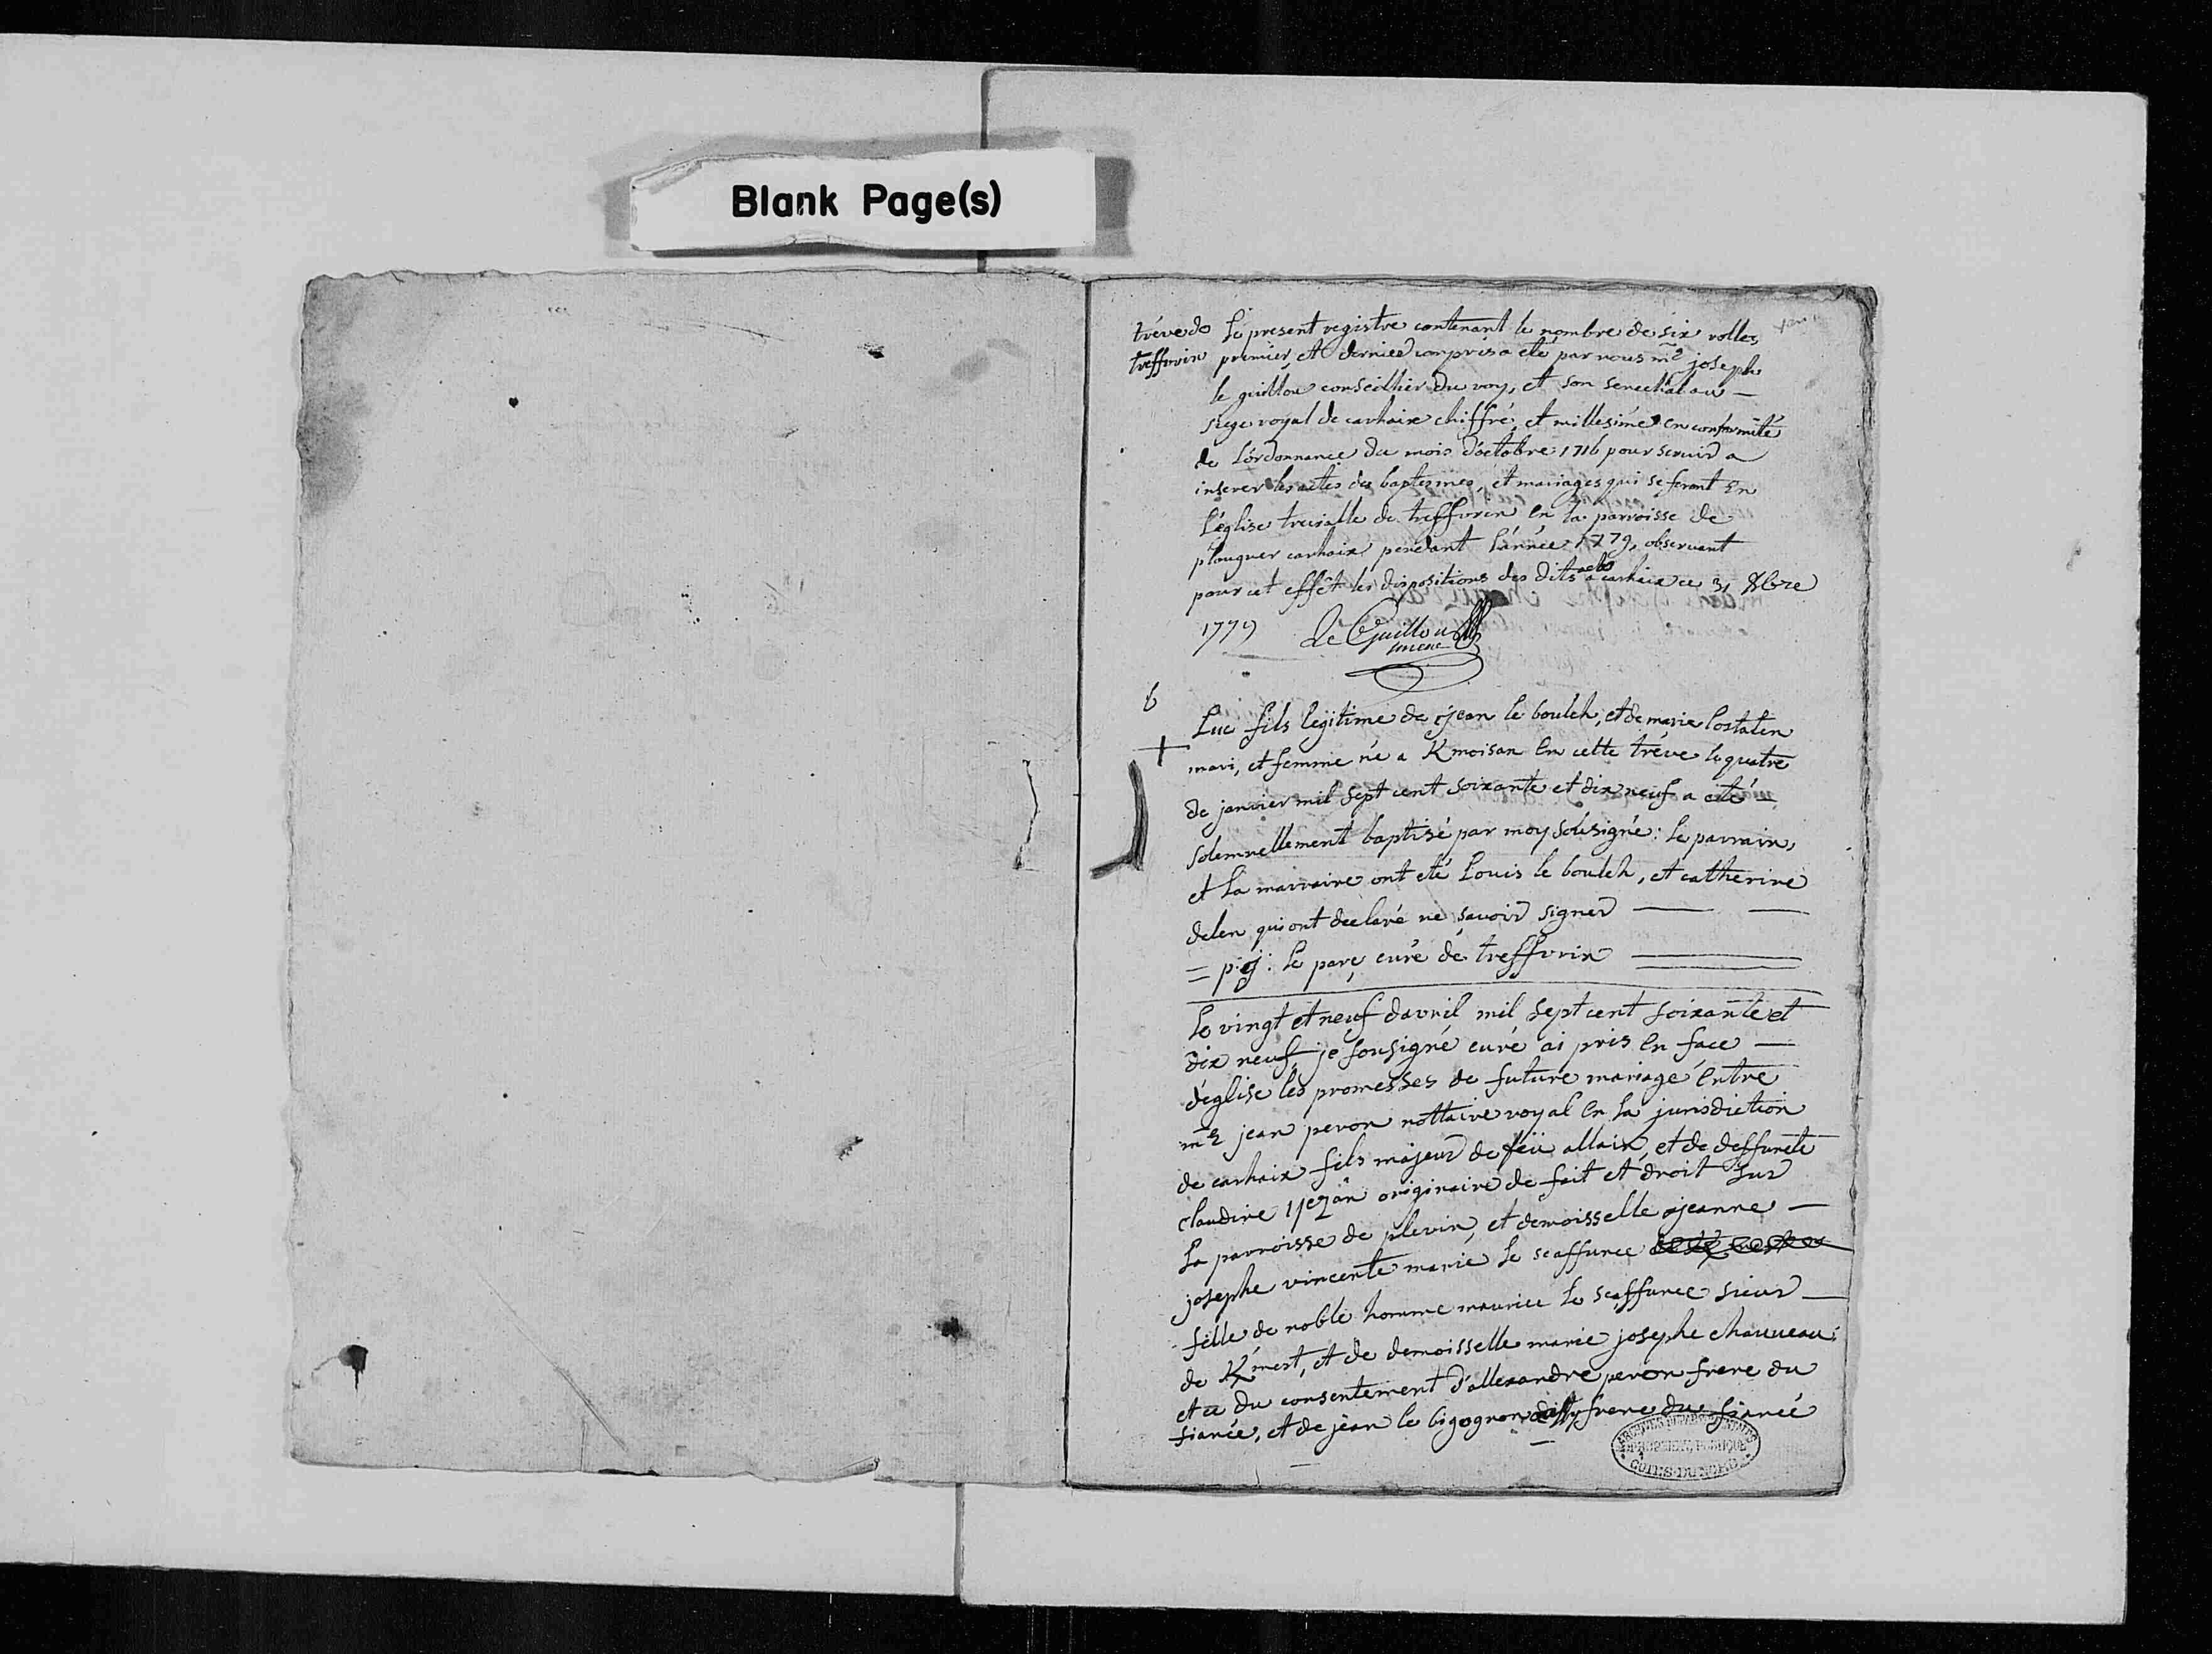 Blank Page(s)
tréve de Le present registre contenant le nombre de six rolles
treffrvin premier, et dernier compris a eté par nous mᵉ joseph
le guillou conseillier du roy, et son senechal au —
siege royal de carhaix chiffré, et millesimé en conformité
de L'órdonnance du mois d'octobre 1716 pour servir a
inserer les actes des baptesmes, et mariages qui se feront en
L'église trevialle de treffvrin en la parroisse de
plouguer carhaix pendant L'année 1779, observant
pour cet effêt les dispositions des dits a carhaix ce 31 Xbre
1779 Le Guillou
b
Luc fils legitime de jean le boulch, et de marie Lostalen
mari, et femme né a Kmoisan en cette tréve le quatre
de janvier mil sept cent soixante et dix neuf a eté —
solemnellement baptisé par moy sousigné : le parrain,
et La marraine ont eté Louis le boulch, et catherine
delen qui ont declaré ne savoir signer —— ——
= p: j: Le parç curé de treffvrin
Le vingt et neuf d'avril mil sept cent soixante et
dix neuf je sousigné curé ai pris en face —
d'église les promesses de future mariage entre
mᵉ jean peron nottaire royal en La jurisdiction
de carhaix fils majeur de feü allain, et de deffuncte
claudine originaire de fait et droit sur
La parroisse de plevin, et demoisselle jeanne —
josephe vincente marie Le scaffunec
fille de noble homme maurice Le scaffunec sieur —
de Kmest, et de demoisselle marie josephe chauveau;
et ce du consentement d'allexandre peron frere du
fiancé, et de jean le bigognon frere du fiancé
COTES-DU-NORD